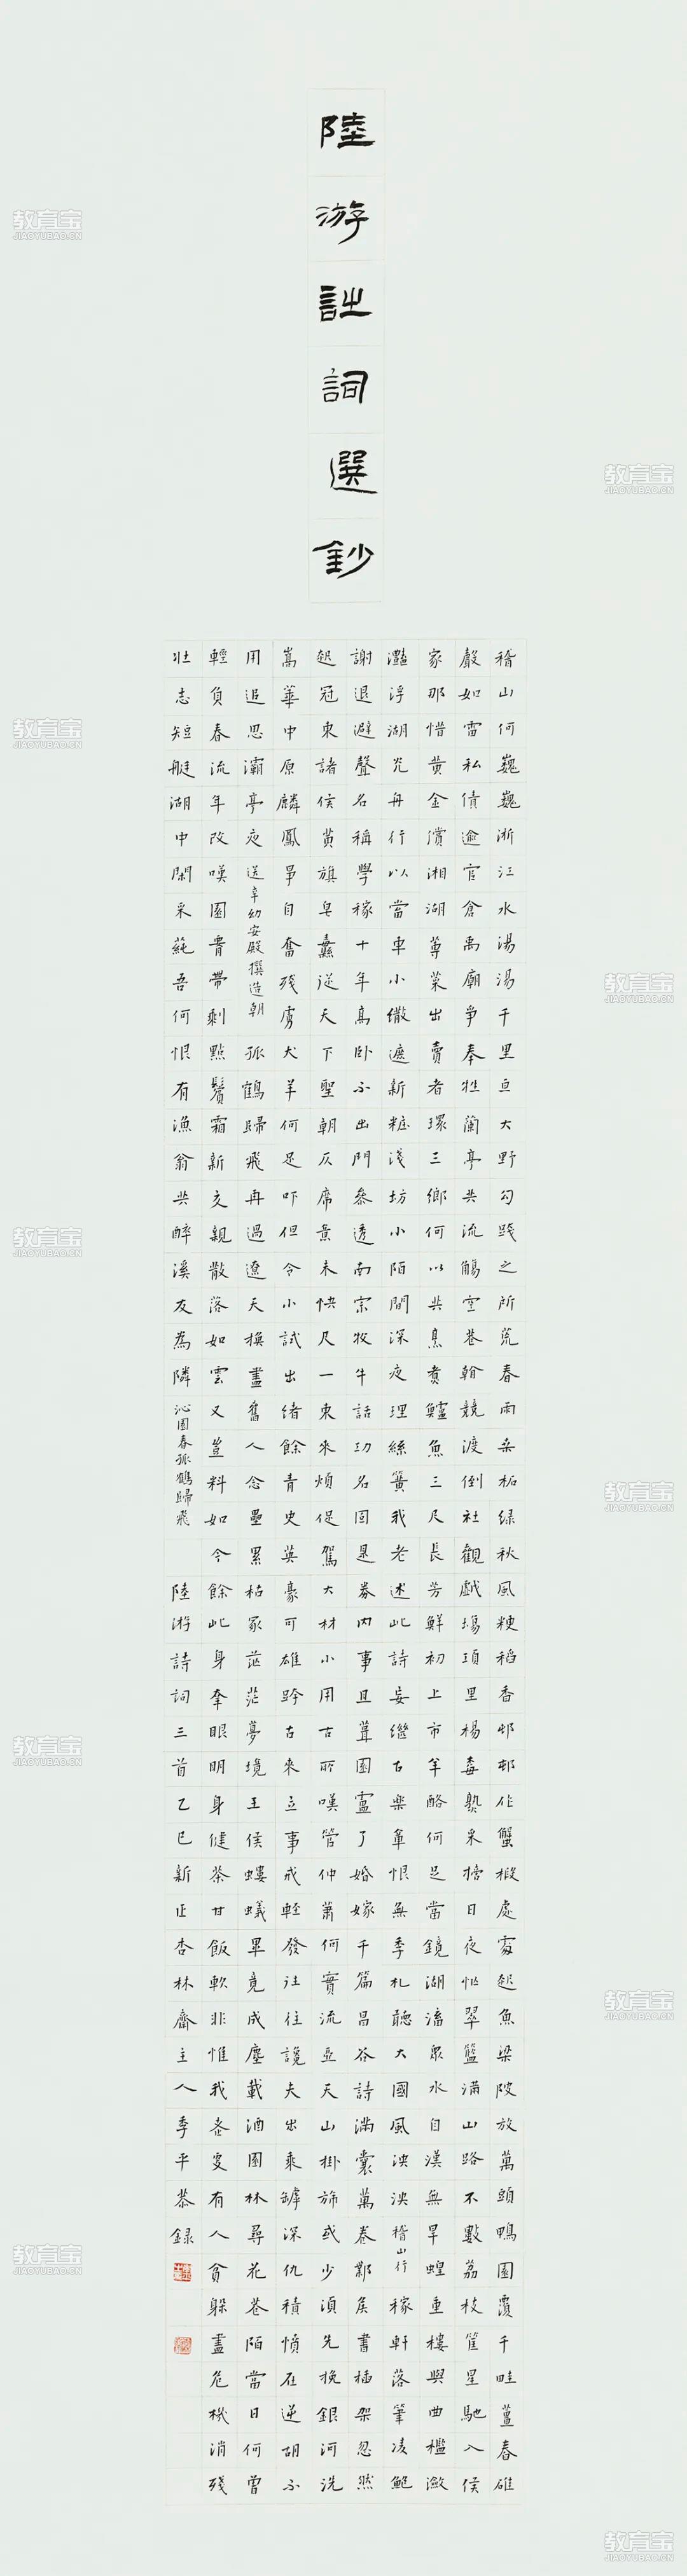 陸游詩詞選鈔
稽山何巍巍浙江水湯湯千里亘大野勾踐之所荒春雨桑柘綠秋風粳稻香邨邨作蟹椴處處起魚梁陂放萬頭鴨園覆千畦薑舂碓
聲如雷私債逾官倉禹廟爭奉牲蘭亭共流觴空巷看競渡倒社觀戲場項里楊梅熟采摘日夜忙翠籃滿山路不數荔枝筐星馳入侯
家那惜黃金償湘湖蓴菜出賣者環三鄉何以共烹煮鱸魚三尺長芳鮮初上市羊酪何足當鏡湖潴眾水自漢無旱蝗重樓與曲檻瀲
灩浮湖光舟行以當車小繖遮新粧淺坊小陌間深夜理絲簧我老述此詩妄繼古樂章恨無季札聽大國風泱泱稽山行稼軒落筆凌鮑
謝退避聲名稱學稼十年高臥不出門參透南宗牧牛話功名固是券內事且葺園廬了婚嫁千篇昌谷詩滿囊萬卷鄴侯書插架忽然
起冠東諸侯黃旗皂纛從天下聖朝仄席意未快尺一東來煩促駕大材小用古所嘆管仲蕭何實流亞天山掛旆或少須先挽銀河洗
嵩華中原麟鳳爭自奮殘虜犬羊何足吓但令小試出緒餘青史英豪可雄跨古來立事戒輕發往往讒夫出乘罅深仇積憤在逆胡不
用追思灞亭夜送辛幼安殿撰造朝孤鶴歸飛再過遼天換盡舊人念壘累枯冢茫茫夢境王侯螻蟻畢竟成塵載酒園林尋花巷陌當日何曾
輕負春流年改嘆圍腰帶剩點鬢霜新交親散落如雲又豈料如今餘此身幸眼明身健茶甘飯軟非惟我老更有人貧躲盡危機消殘
壯志短艇湖中閑采蓴吾何恨有漁翁共醉溪友為隣沁園春孤鶴歸飛
陸游詩詞三首乙巳新正杏林齋主人季平恭錄
教育宝
JIAOYUBAO.CN
教育宝
JIAOYUBAO.CN
教育宝
JIAOYUBAO.CN
教育宝
JIAOYUBAO.CN
教育宝
JIAOYUBAO.CN
教育宝
JIAOYUBAO.CN
教育宝
JIAOYUBAO.CN
教育宝
JIAOYUBAO.CN
教育宝
JIAOYUBAO.CN
教育宝
JIAOYUBAO.CN